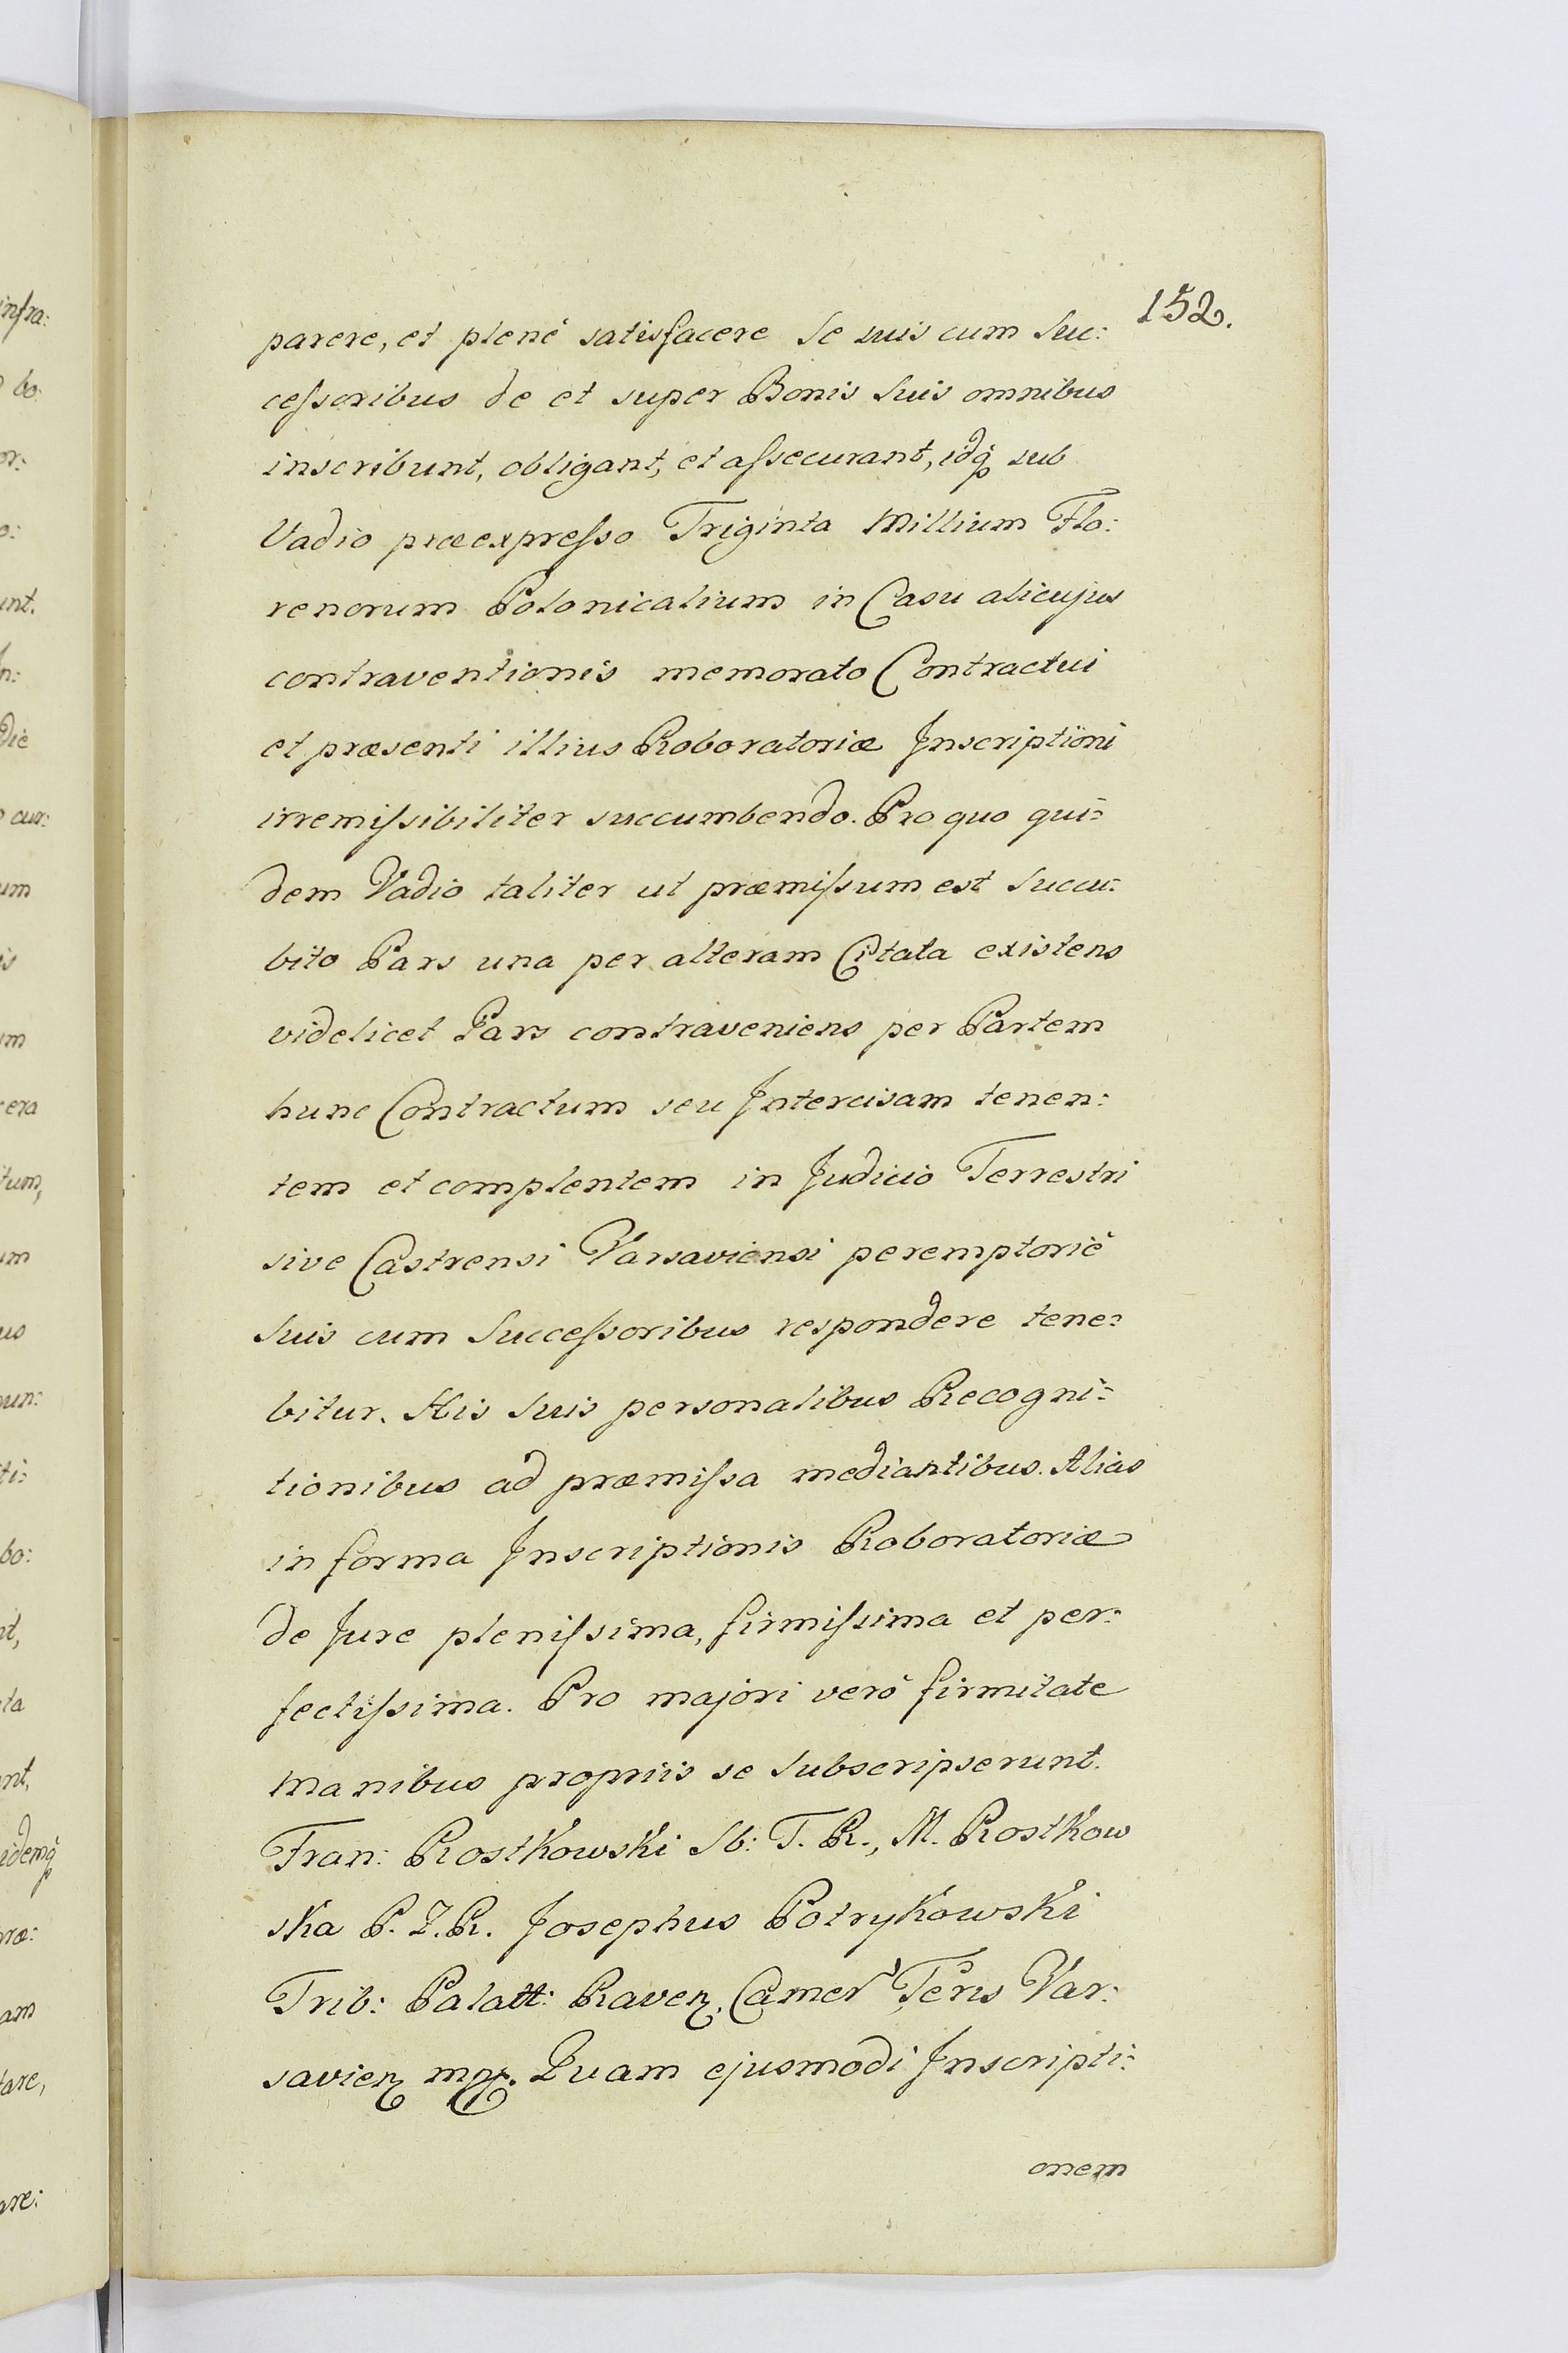 152.
parere, et plenè satisfacere se suis cum Suc:
ceſsoribus de et super Bonis Suis omnibus
inscribunt, obligant, et aſsecurant, idq́ sub
Vadio præexpreſso Triginta Millium Flo:
renorum Polonicalium in Casu alicujus
contraventionis memorato Contractui
et præsenti illius Roboratoriæ Inscriptioni
irremiſsibiliter succumbendo. Pro quo qui:
dem Vadio taliter ut præmiſsum est Succu:
bito Pars una per alteram Citata existens
videlicet Pars contraveniens per Partem
hunc Contractum seu Intercisam tenen:
tem et complentem in Judicio Terrestri
sive Castrensi Varsaviensi peremptoriè
Suis cum Succeſsoribus respondere tene:
bitur. His Suis personalibus Recogni:
tionibus ad præmiſsa mediantibus. Alias
in forma Inscriptionis Roboratoriæ
de Jure pleniſsima, firmiſsima et per:
fectiſsima. Pro majori verò firmitate
manibus propriis se Subscripserunt.
Fran: Rostkowski Sb: T. R., M. Rostkow
ska P. Z. R. Josephus Potrykowski
Trib: Palatt: Raven. Camer Terris Var:
savien mp. Quam ejusmodi Inscripti:
onem